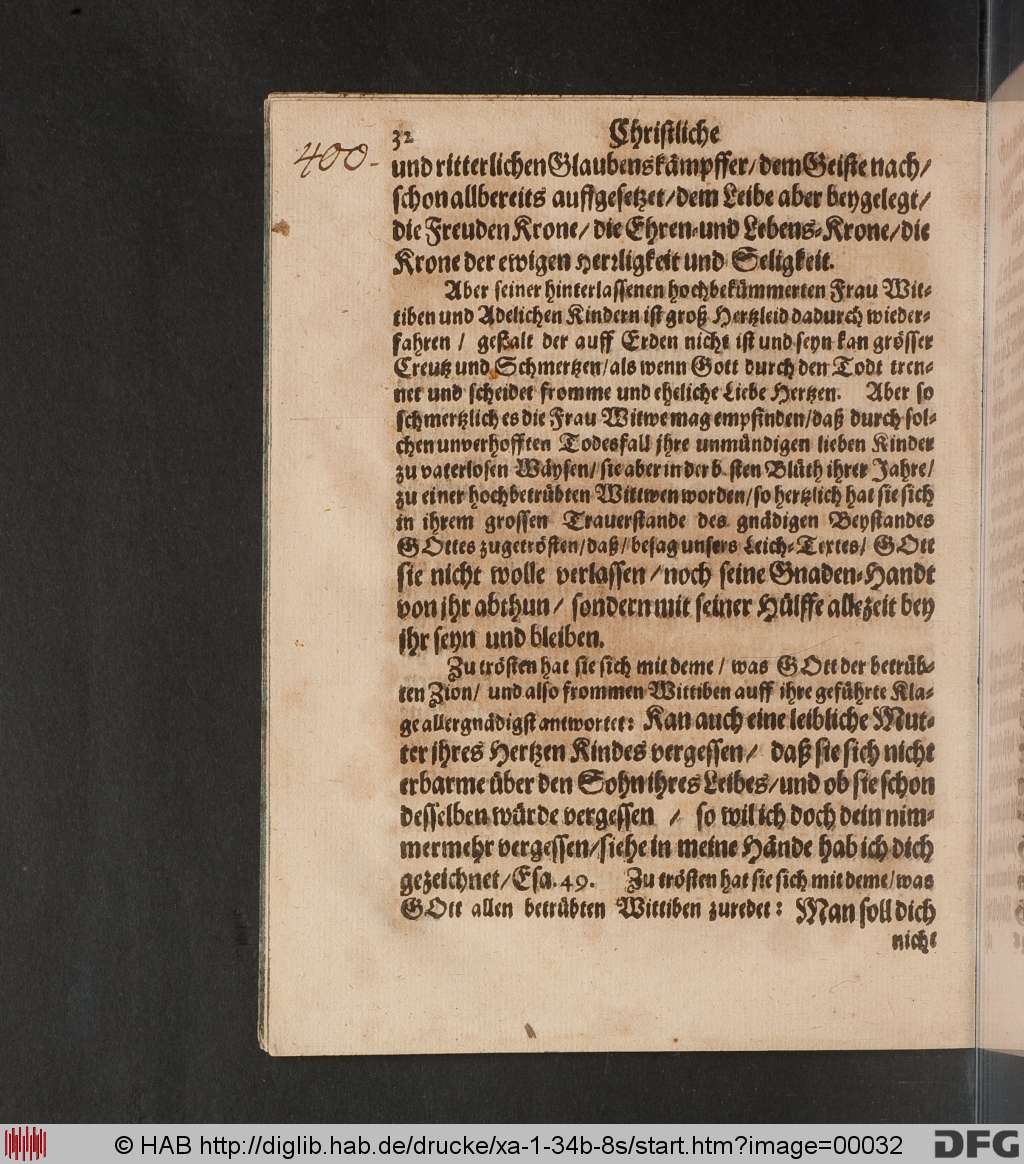 400-
32 Christliche
und ritterlichen Glaubenskämpffer/ dem Geiste nach/
schon allbereits auffgesetzet/ dem Leibe aber beygelegt/
die Freuden Krone/ die Ehren-und Lebens-Krone/ die
Krone der ewigen Herrligkeit und Seligkeit.
Aber seiner hinterlassenen hochbekümmerten Frau Wit-
tiben und Adelichen Kindern ist groß Hertzleid dadurch wieder-
fahren / gestalt der auff Erden nicht ist und seyn kan grösser
Creutz und Schmertzen/ als wenn Gott durch den Todt tren-
net und scheidet fromme und eheliche Liebe Hertzen. Aber so
schmertzlich es die Frau Witwe mag empfinden/ daß durch sol-
chen unverhofften Todesfall jhre unmündigen lieben Kinder
zu vaterlosen Wäysen/ sie aber in der b sten Blüth ihrer Jahre/
zu einer hochbetrübten Wittwen worden/ so hertzlich hat sie sich
in ihrem grossen Trauerstande des gnädigen Beystandes
GOttes zugetrösten/ daß/ besag unsers Leich-Textes/ GOtt
sie nicht wolle verlassen / noch seine Gnaden-Handt
von jhr abthun/ sondern mit seiner Hülffe allezeit bey
jhr seyn und bleiben.
Zu trösten hat sie sich mit deme / was GOtt der betrüb-
ten Zion/ und also frommen Wittiben auff ihre geführte Kla-
ge allergnädigst antwortet: Kan auch eine leibliche Mut-
ter jhres Hertzen Kindes vergessen/ daß sie sich nicht
erbarme über den Sohn ihres Leibes/ und ob sie schon
desselben würde vergessen / so wil ich doch dein nim-
mermehr vergessen/ siehe in meine Hände hab ich dich
gezeichnet/ Esa. 49. Zu trösten hat sie sich mit deme/ was
GOtt allen betrübten Wittiben zuredet: Man soll dich
nicht
© HAB http://diglib.hab.de/drucke/xa-1-34b-8s/start.htm?image=00032
DFG